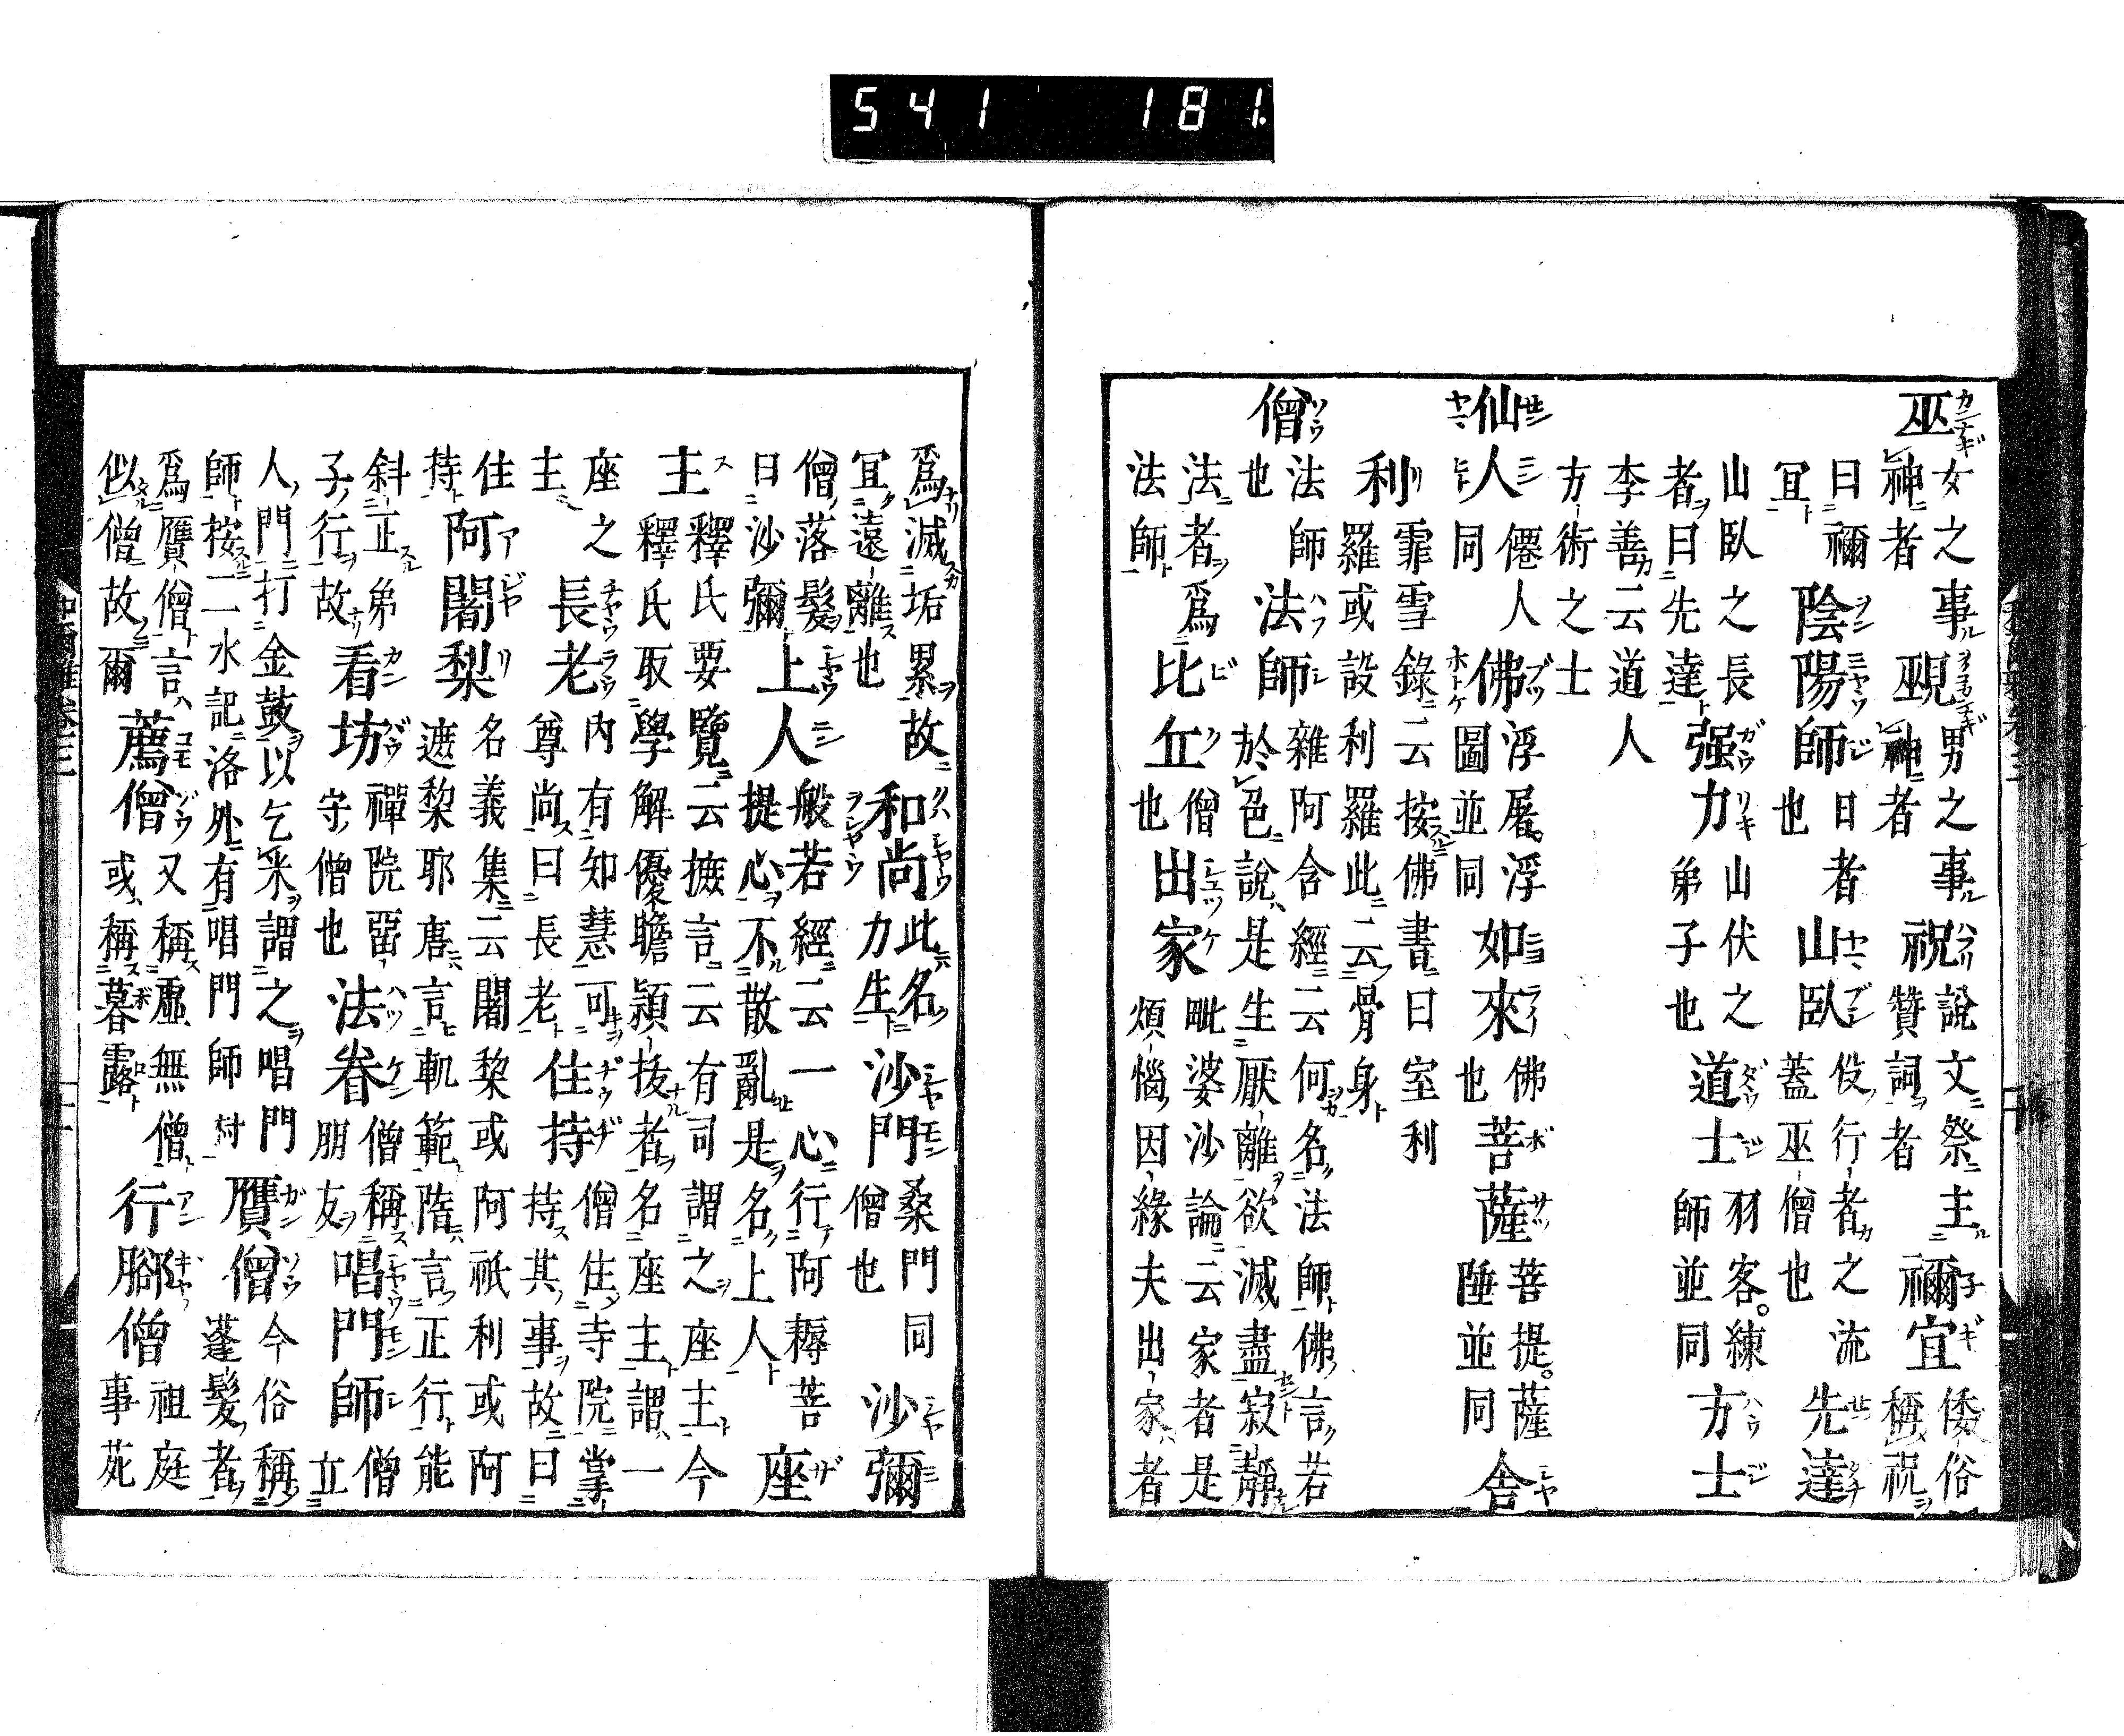 541 181.
巫女之事神者巫覡男之事神者祝說文祭主贊詞者禰宜倭俗稱祝
曰禰宜陰陽師日者也山臥役行者之流蓋巫僧也先達
山臥之長者曰先達强力山伏之弟子也道士羽客。練師並同方士
李善云道人方術之士
仙人僊人同佛浮屠。浮圖並同如來佛也菩薩菩提。薩埵並同舍
利霏雪錄云按佛書曰室利羅或設利羅此云骨身
僧法師也法師雜阿含經云何名法師佛言若於色說是生厭離欲滅盡寂靜
法者爲法師比丘僧也出家毗婆沙論云家者是煩惱因緣夫出家者
爲滅垢累故宜遠離也和尚此名力生沙門桑門同僧也沙彌
僧落髮曰沙彌上人般若經云一心行阿耨菩提心不散亂是名上人座
主釋氏要覽云摭言云有司謂之座主今釋氏取學解優瞻穎拔者名座主謂一
座之主長老內有知慧可尊尚曰長老住持僧住寺院掌持其事故曰
住持阿闍梨名義集云闍黎或阿祇利或阿遮黎耶唐言軌範隋言正行能
斜正弟子行故看坊禪院留守僧也法眷僧稱朋友唱門師僧立
人門打金鼓以乞米謂之唱門師按二水記洛外有唱門師村贋僧今俗稱蓬髮者
爲贋僧言似僧故爾薦僧又稱虛無僧或稱暮露行腳僧祖庭事苑